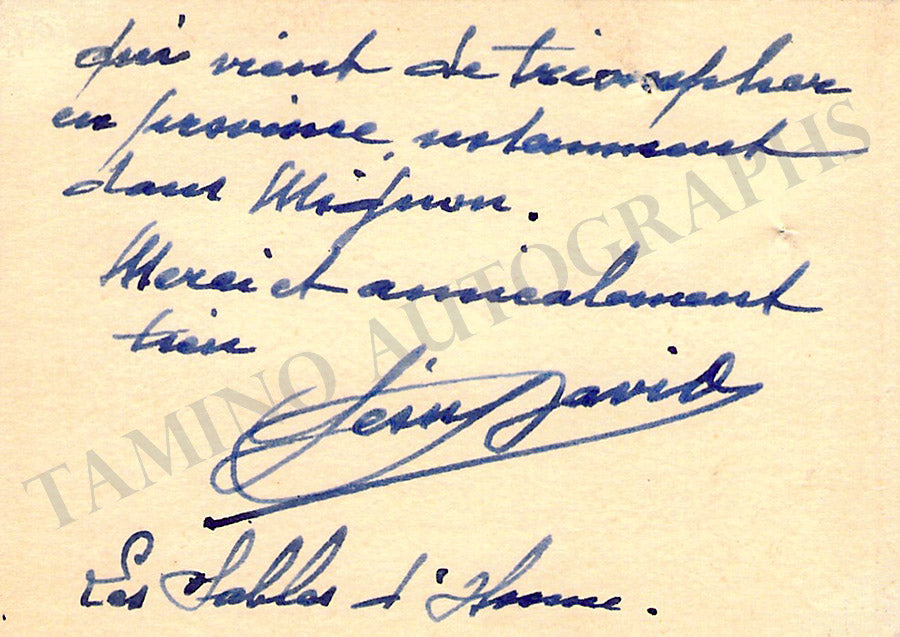 qui vient de triompher
en province, notamment
dans Mignon.
Merci et amicalement
tien
Léin David
Les Sables d'Olonne.
TAMINO AUTOGRAPHS